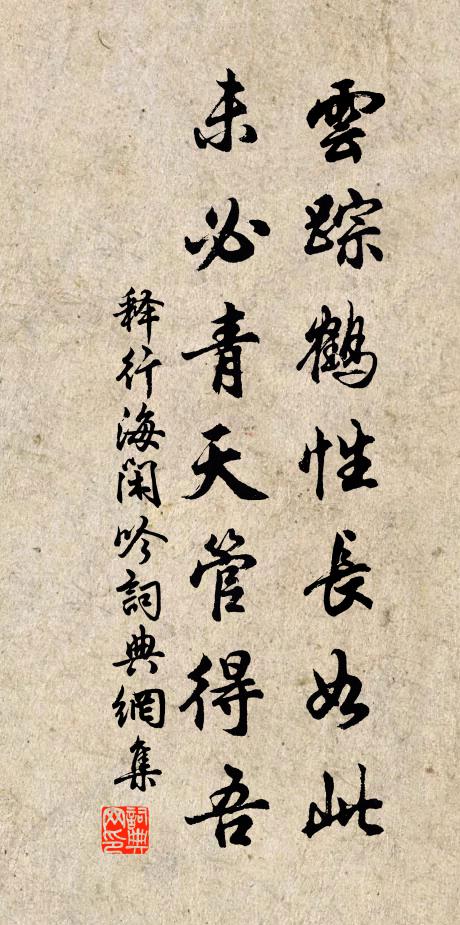 雲踪鶴性長如此
未必青天管得吾
释行海閑吟詞典網集
詞典
网印